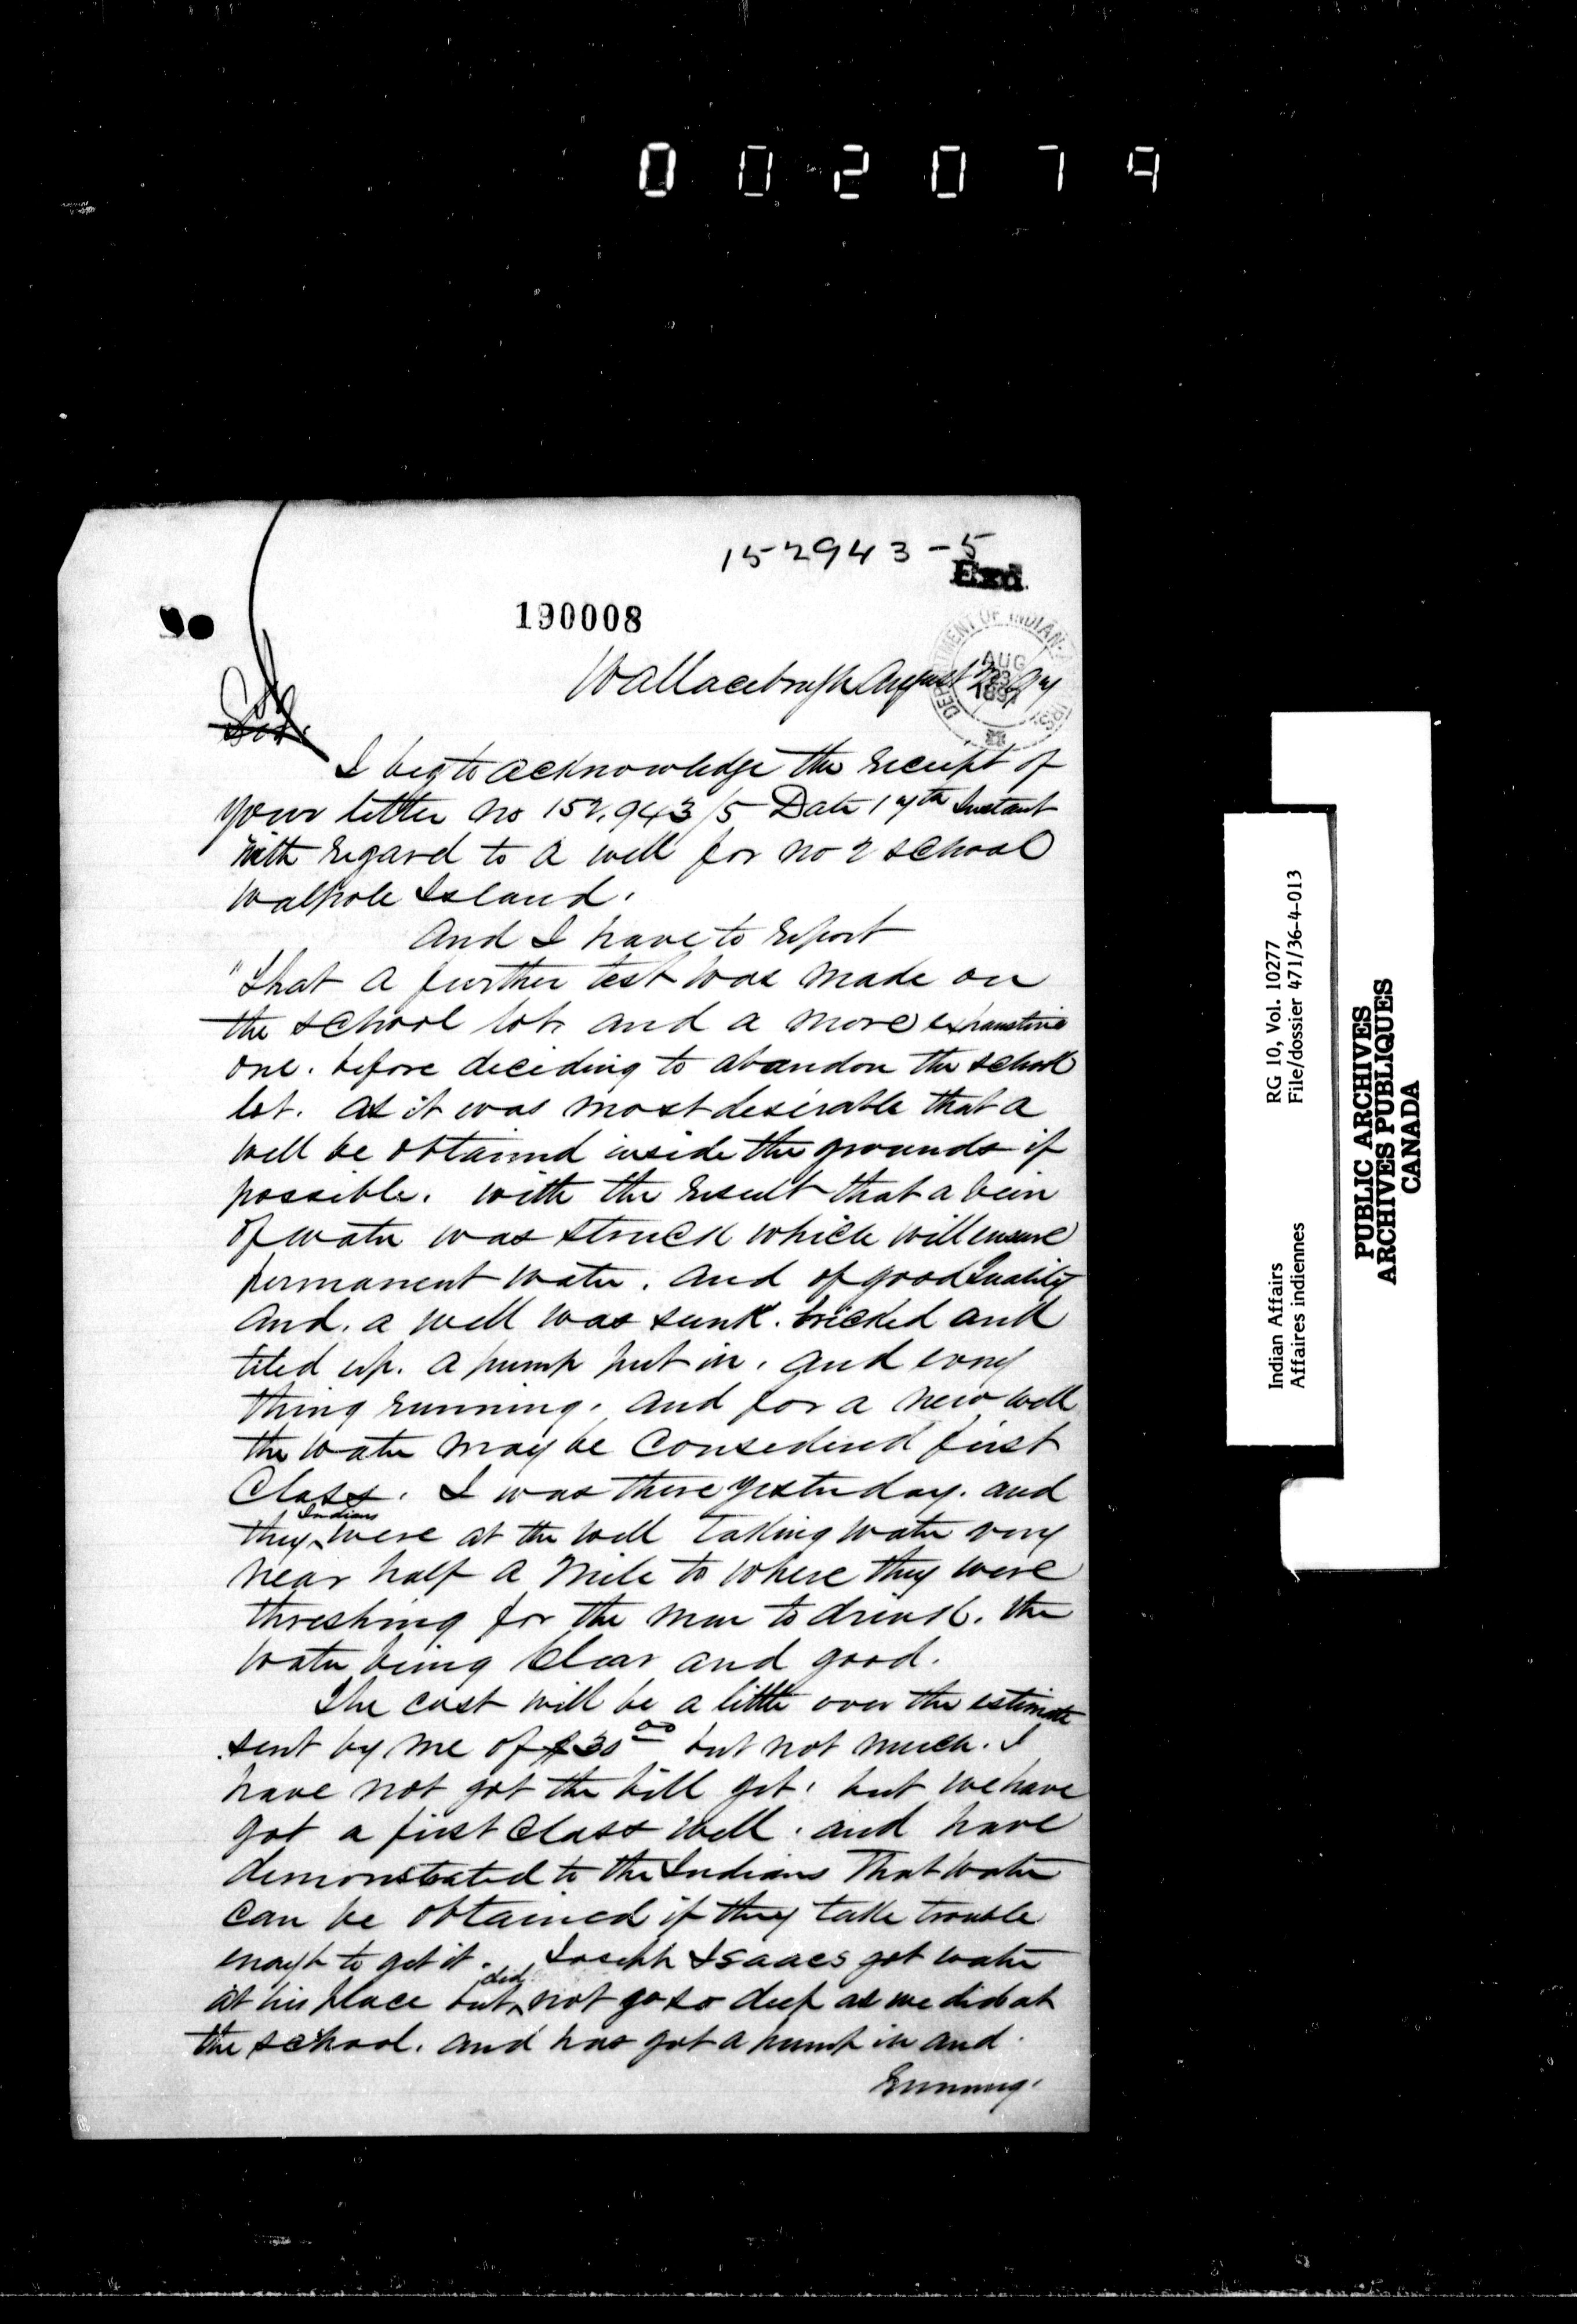 002079
152943-5
Exd.
190008
DEPARTMENT OF INDIAN
AUG
23
1897
Wallaceburgh August
Sir.
I beg to acknowledge the receipt of
your letter no 152,943/5 Date 17th Instant
with regard to a well for no 2 school
Walpole Island.
And I have to report
"That a further test was made on
the school lot. and a more exhaustive
one. before deciding to abandon the school
lot. as it was most desirable that a
well be obtained inside the grounds if
possible. with the result that a vein
of water was struck which will ensure
permanent water. and of good Quality
and. a well was sunk. bricked and
tiled up. a pump put in. and every
thing running. and for a new well
the water may be considered first
Class. I was there yesterday. and
they Indians were at the well taking water very
near half a mile to where they were
threshing for the men to drink. the
water being clear and good.
The cost will be a little over the estimate
sent by me of $30 00 but not much. I
have not got the bill yet. but we have
got a first class well. and have
demonstrated to the Indians That water
can be obtained if they take trouble
enough to get it. Joseph Isaacs got water
at his place but did not go so deep as we did at
the school. and has got a pump in and
running.
Indian Affairs RG 10, Vol. 10277
Affaires indiennes File/dossier 471/36-4-013
PUBLIC ARCHIVES
ARCHIVES PUBLIQUES
CANADA